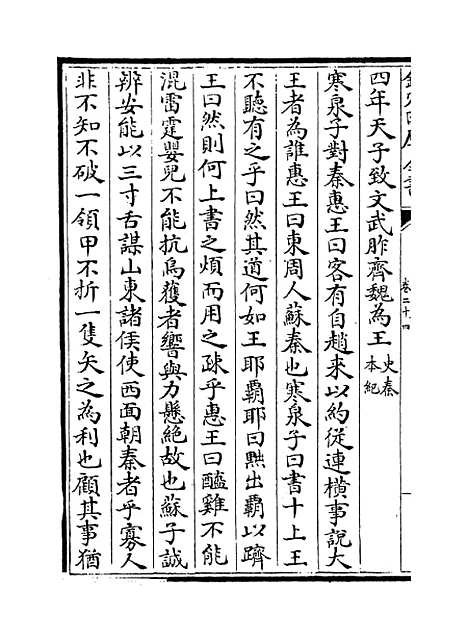 四年天子致文武胙齊魏為王史秦本紀
寒泉子對秦惠王曰客有自趙來以約從連橫事說大
王者為誰惠王曰東周人蘇秦也寒泉子曰書十上王
不聽有之乎曰然其道何如王耶霸耶曰黜出霸以躋
王曰然則何上書之煩而用之疎乎惠王曰醯雞不能
混雷霆嬰兒不能抗烏獲者響與力懸絕故也蘇子誠
辨安能以三寸舌謀山東諸侯使西面朝秦者乎寡人
非不知不破一領甲不折一隻矢之為利也顧其事猶
卷二十四